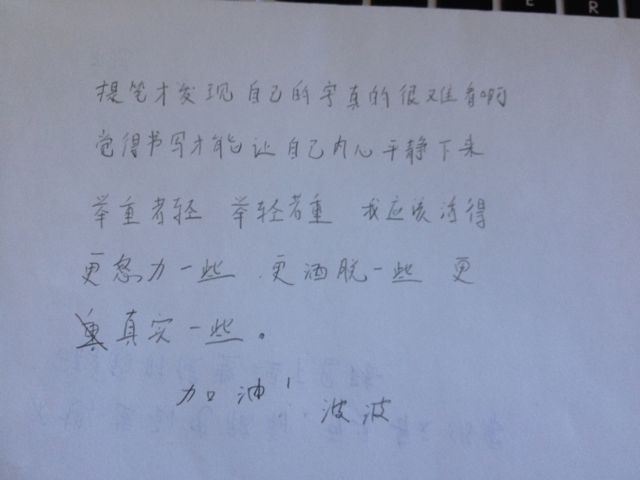 E R
提笔才发现自己的字真的很难看啊
觉得书写才能让自己内心平静下来
举重者轻 举轻者重 我应该活得
更努力一些 更洒脱一些 更
真实一些。
加油! 波波